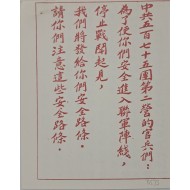 中共五百七十五團第二營的官兵們：
為了使你們安全進入聯軍陣綫，
停止戰鬪起見，
我們將發給你們安全路條。
請你們注意這些安全路條。